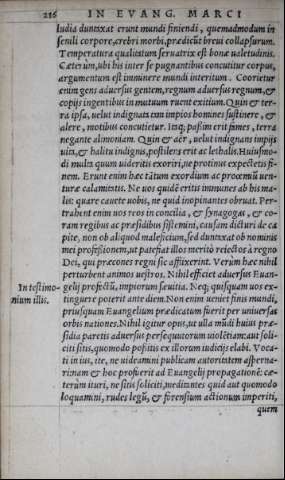 216 IN EVANG. MARCI
ludia duntaxat erunt mundi finiendi, quemadmodum in
senili corpore, crebri morbi, prædicūt breui collapsurum.
Temperatura qualitatum seruatrix est bonæ ualetudinis.
Cæterùm, ubi his inter se pugnantibus concutitur corpus,
argumentum est imminere mundi interitum. Coorietur
enim gens aduersus gentem, regnum aduersus regnum, &
copijs ingentibus in mutuum ruent exitium. Quin & ter-
ra ipsa, uelut indignata tam impios homines sustinere, &
alere, motibus concutietur. Itaq; passim erit fames, terra
negante alimoniam. Quin & aër, uelut indignans impijs
uita, & halitu indignis, pestilens erit ac lethalis. Huiusmo-
di multa quum uideritis exoriri, ne protinus expectetis fi-
nem. Erunt enim hæc tãtum exordium ac procemiũ uen-
turæ calamitatis. Ne uos quidẽ eritis immunes ab his ma-
lis: quare cauete uobis, ne quid inopinantes obruat. Per-
trahent enim uos reos in concilia, & synagogas, & co-
ram regibus ac præsidibus sistemini, causam dicturi de ca
pite, non ob aliquod maleficium, sed duntaxat ob nominis
mei professionem, ut patefiat illos meritò reiectos à regno
Dei, qui præcones regni sic afflixerint. Verùm hæc nihil
perturbent animos uestros. Nihil efficiet aduersus Euan-
In testimo- gelij profectũ, impiorum sæuitia. Neq; quisquam uos ex-
nium illis. tinguere poterit ante diem. Non enim ueniet finis mundi,
priusquam Euangelium prædicatum fuerit per uniuersas
orbis nationes. Nihil igitur opus, ut ulla mũdi huius præ-
sidia paretis aduersus persequutorum uiolẽtiam: aut soli-
citi sitis, quomodo possitis ex illorum iudicijs elabi. Voca-
ti in ius, ite, ne uideamini publicam autoritatem asperna-
ri: nam & hoc profuerit ad Euangelij propagationẽ: cæ-
terùm ituri, ne sitis soliciti, meditantes quid aut quomodo
loquamini, rudes legũ, & forensium actionum imperiti,
quem